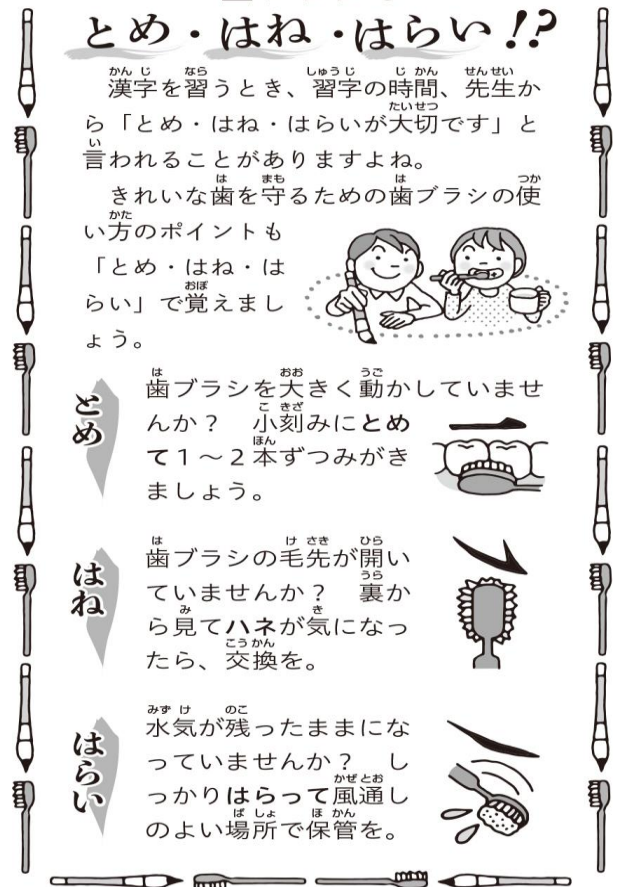 とめ・はね・はらい!?
漢字を習うとき、習字の時間、先生か
ら「とめ・はね・はらいが大切です」と
言われることがありますよね。
きれいな歯を守るための歯ブラシの使
い方のポイントも
「とめ・はね・は
らい」で覚えまし
ょう。
とめ
歯ブラシを大きく動かしていませ
んか? 小刻みにとめ
て1～2本ずつみがき
ましょう。
はね
歯ブラシの毛先が開い
ていませんか? 裏か
ら見てハネが気になっ
たら、交換を。
はらい
水気が残ったままにな
っていませんか? し
っかりはらって風通し
のよい場所で保管を。